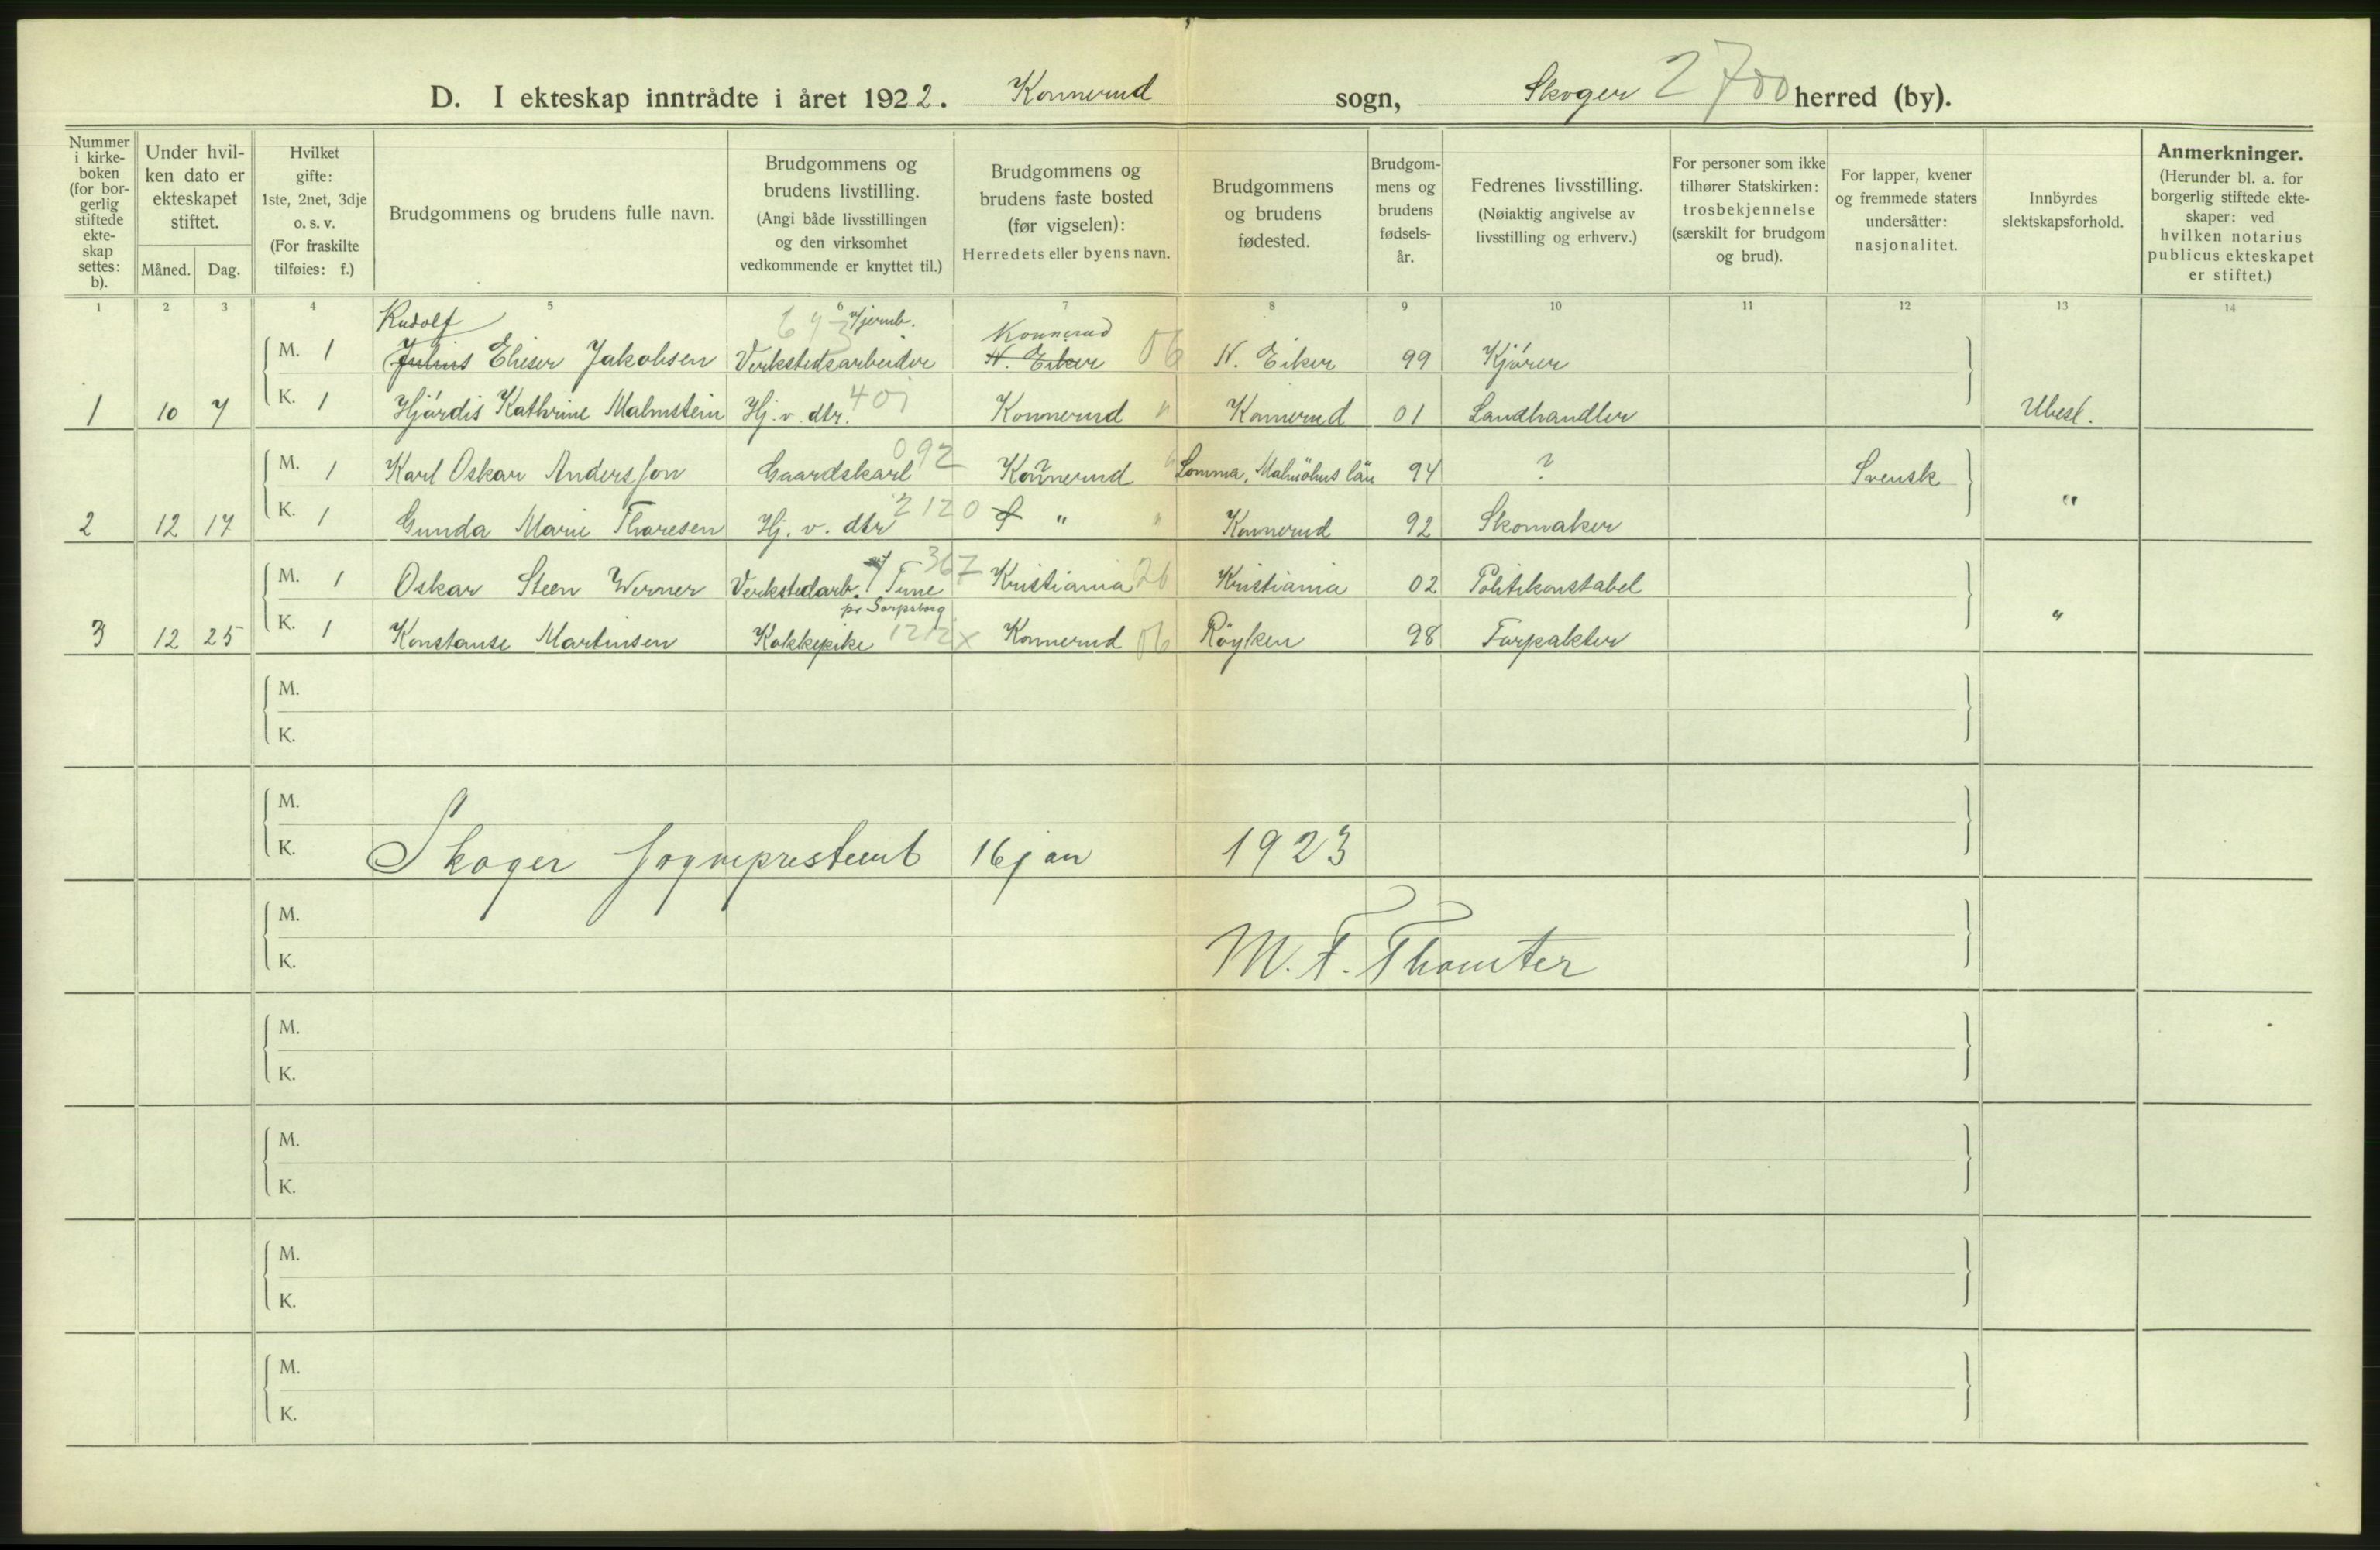 D. I ekteskap inntrådte i året 1922. Konnerud sogn, Skoger 2700 herred (by).
Nummer i kirkeboken (for borgerlig stiftede ekteskap settes: b).
Under hvilken dato er ekteskapet stiftet.
Måned. Dag.
Hvilket gifte: 1ste, 2net, 3dje o. s. v. (For fraskilte tilføies: f.)
Brudgommens og brudens fulle navn.
Brudgommens og brudens livstilling. (Angi både livsstillingen og den virksomhet vedkommende er knyttet til.)
Brudgommens og brudens faste bosted (før vigselen): Herredets eller byens navn.
Brudgommens og brudens fødested.
Brudgommens og brudens fødselsår.
Fedrenes livsstilling. (Nøiaktig angivelse av livsstilling og erhverv.)
For personer som ikke tilhører Statskirken: trosbekjennelse (særskilt for brudgom og brud).
For lapper, kvener og fremmede staters undersåtter: nasjonalitet.
Innbyrdes slektskapsforhold.
Anmerkninger. (Herunder bl. a. for borgerlig stiftede ekteskaper: ved hvilken notarius publicus ekteskapet er stiftet.)
1 2 3 4 5 6 7 8 9 10 11 12 13 14
Rudolf Konnerud
M. 1 Julius Elieser Jakobsen Verkstedsarbeider N. Eiker 06 N. Eiker 99 Kjörer
1 10 7 K. 1 Hjördis Kathrine Malmstein Hj. v. dtr. 401 Konnerud " Konnerud 01 Landhandler Ubesl.
M. 1 Karl Oskar Andersson Gaardskarl 092 Konnerud Lomma, Malmöhus län 94 ? Svensk
2 12 17 K. 1 Gunda Marie Thoresen Hj. v. dtr 2120 " " Konnerud 92 Skomaker "
M. 1 Oskar Steen Werner Verkstedarb. Tune 367 Kristiania 26 Kristiania 02 Politikonstabel
pr Sarpsborg
3 12 25 K. 1 Konstanse Martinsen Kokkepike 1212 x Konnerud 06 Röyken 98 Forpakter "
M.
K.
M.
K. Skoger sogneprestemb 16 jan 1923
M.
K. M. F. Thomter
M.
K.
M.
K.
M.
K.
M.
K.